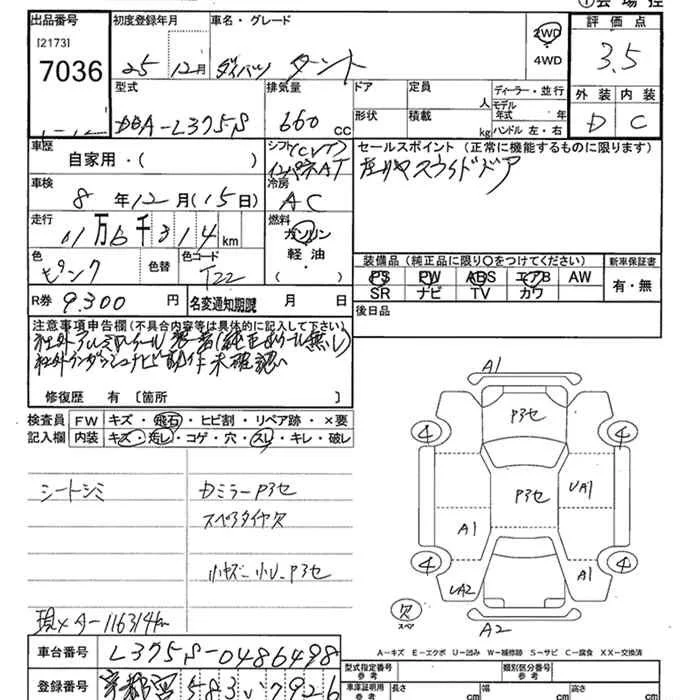 ①会場控
出品番号 初度登録年月 車名・グレード 評価点
[2173]
7036 25 12月 ダイハツ タント 2WD 4WD 3.5
型式 排気量 ドア 定員 人 ディーラー・並行 外装 内装
DBA-L375S 660 cc 形状 積載 kg モデル年式 年 ハンドル 左・右 D C
車歴 自家用・( ) シフト(CVT) セールスポイント (正常に機能するものに限ります)
インパネAT 左リヤスライドドア
車検 8年12月(15日) 冷房 AC
走行 11万6千314km 燃料 ガソリン 軽油・( )
色 ピンク 色替 色コード T22
装備品(純正品に限り○をつけてください) 新車保証書
PS PW ABS エアB AW 有・無
SR ナビ TV カワ
R券 9.300 円 名変通知期限 月 日 後日品
注意事項申告欄(不具合内容等は具体的に記入して下さい)
社外アルミホイール装着(純正ホイール無し)
社外インダッシュナビ動作未確認
修復歴 有 〔箇所 〕
検査員 FW キズ・飛石・ヒビ割・リペア跡・×要
記入欄 内装 キズ・汚レ・コゲ・穴・スレ・キレ・破レ
シートシミ Dミラー P3セ
スペアタイヤ欠
小キズ 小U P3セ
現メター116314km
A1
P3セ
4 4
P3セ UA1
A1
4 4
UA2 A1
欠 スペア A2
A-キズ E-エクボ U-凹み W-補修跡 S-サビ C-腐食 XX-交換済
車台番号 L375S-0486498
登録番号 京都 583 い 7926
型式指定番号 参考 類別区分番号 参考
車庫証明用 参考 長さ cm 幅 cm 高さ cm